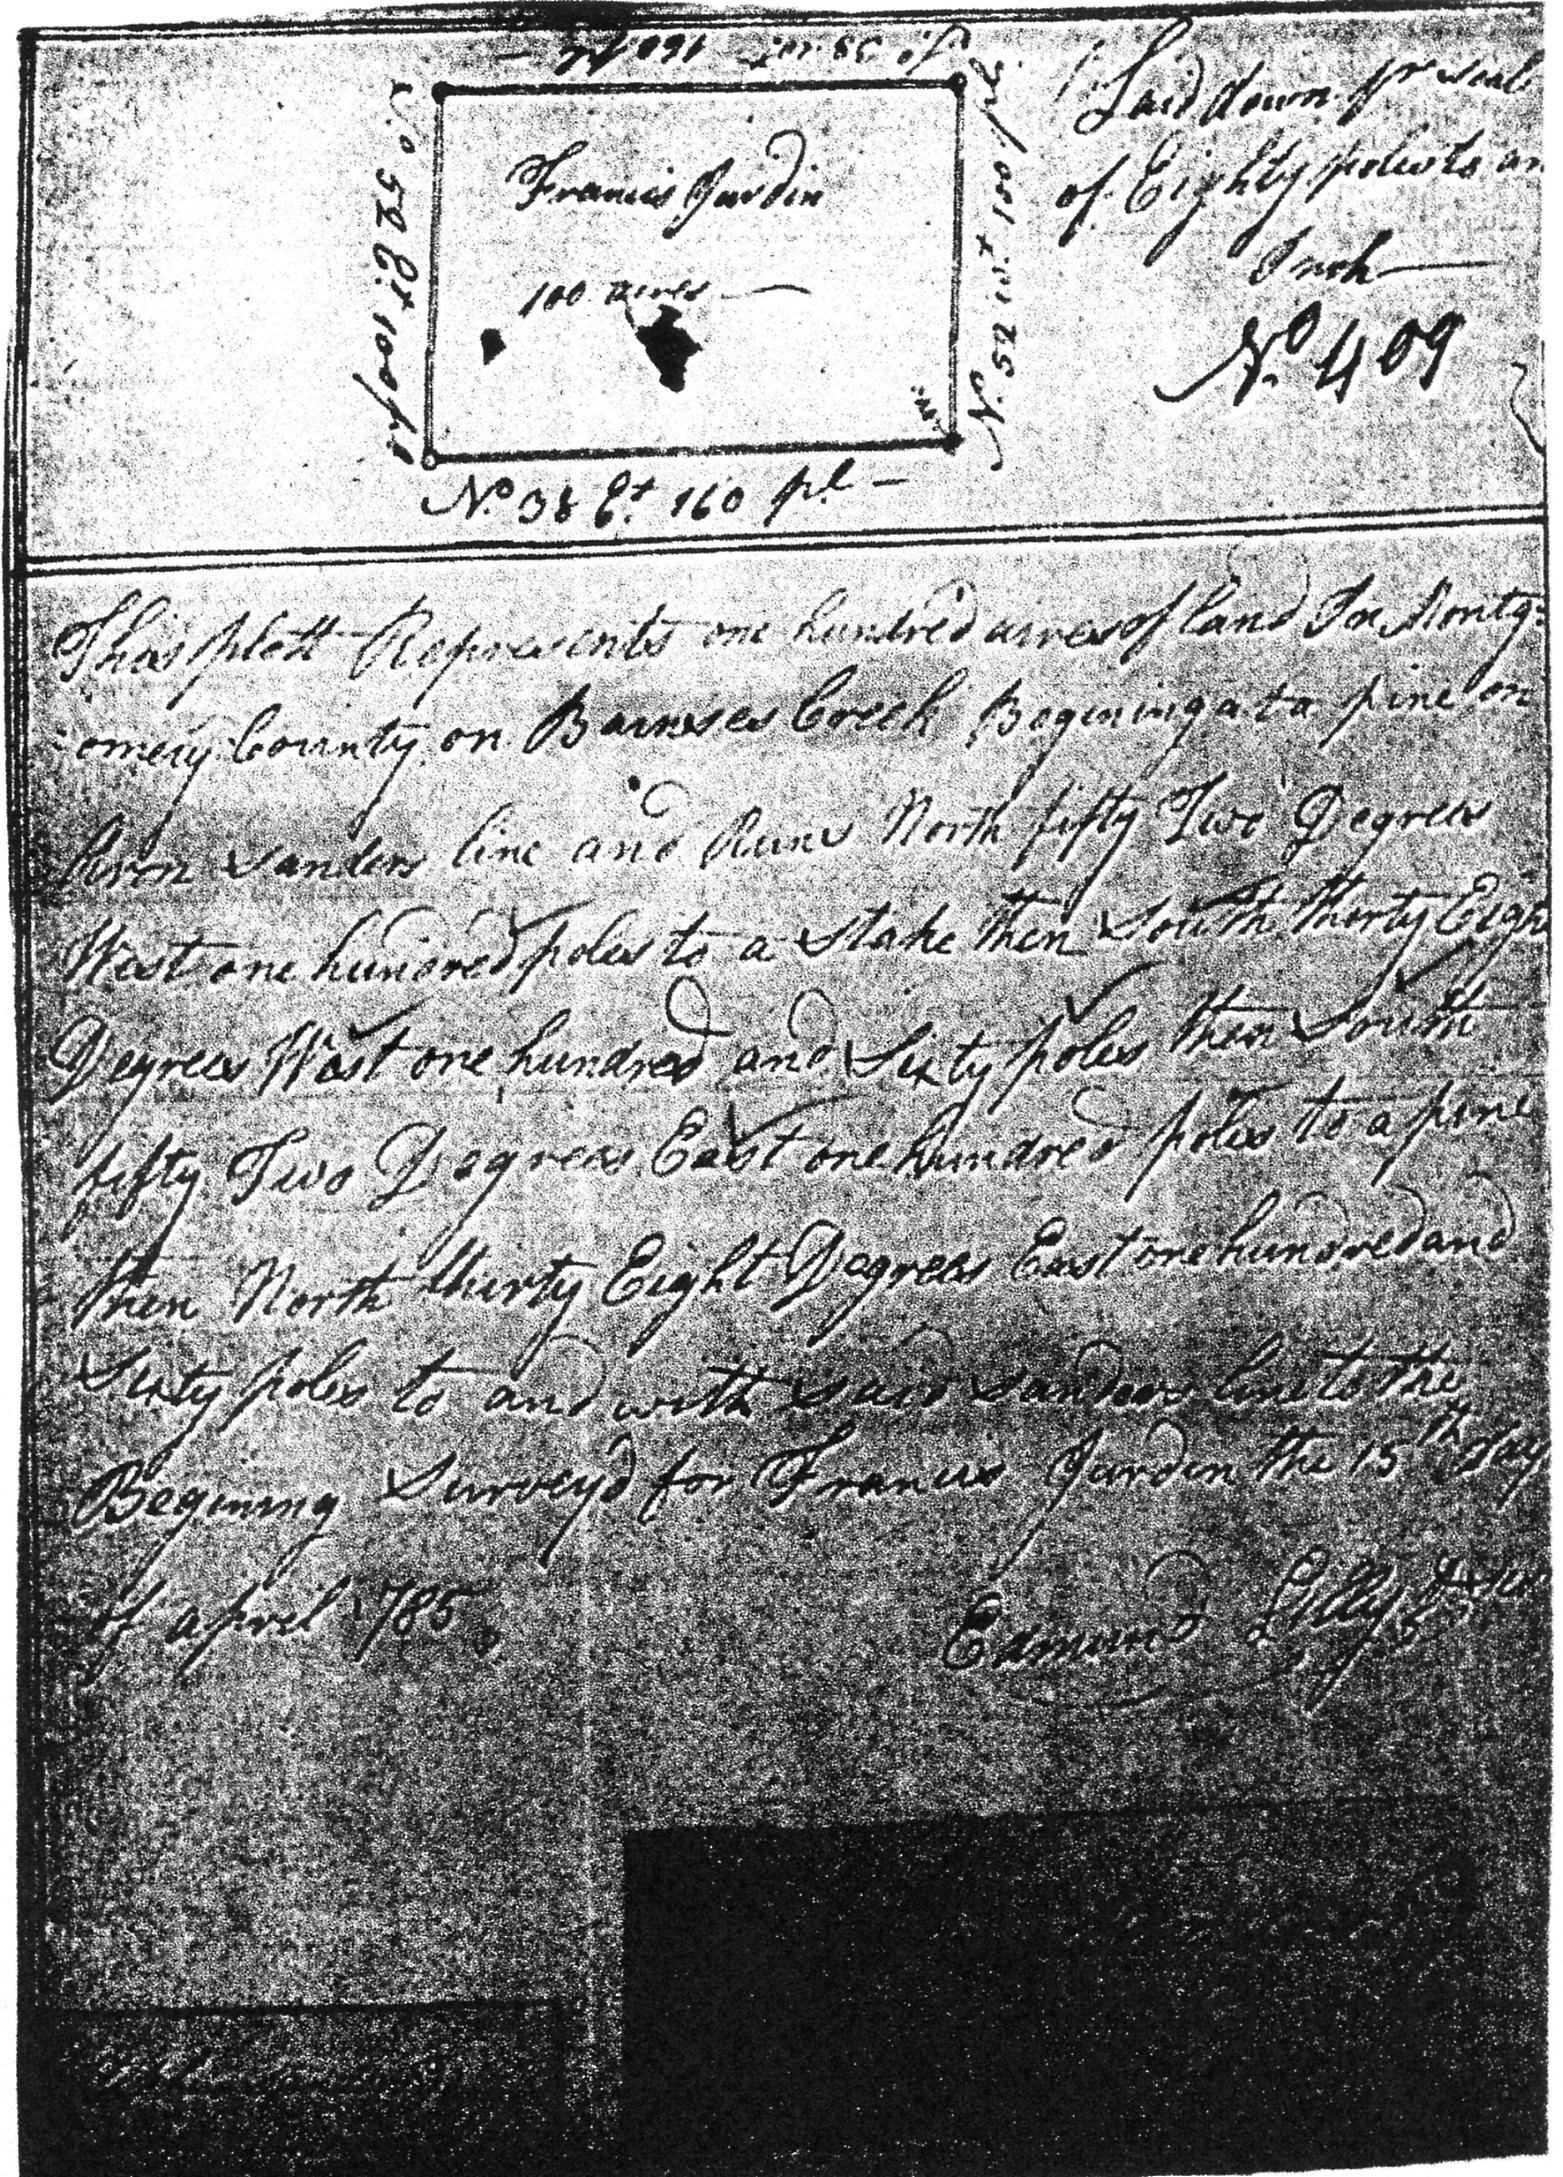 So 38 wt 160 pl —
So 52 Et 100 pl
Francis Jurdin
100 acres
No 52 wt 100 pl
No 38 Et 160 pl —
Laid down pr scal
of Eighty poles to an
Inch
No 409
This platt Represents one hundred acres of land In Montg=
omery County on Barnses Creek Begining at a pine on
Aron Sanders line and Runs North fifty Two Degrees
West one hundred poles to a Stake then South thirty Eigh
Degrees West one hundred and Sixty poles then South
fifty Two Degrees East one hundred poles to a pine
then North thirty Eight Degrees East one hundred and
Sixty poles to and with said Sanders line to the
Begining Survey'd for Francis Jurdin the 15th day
of april 1785
Edmund Lilly